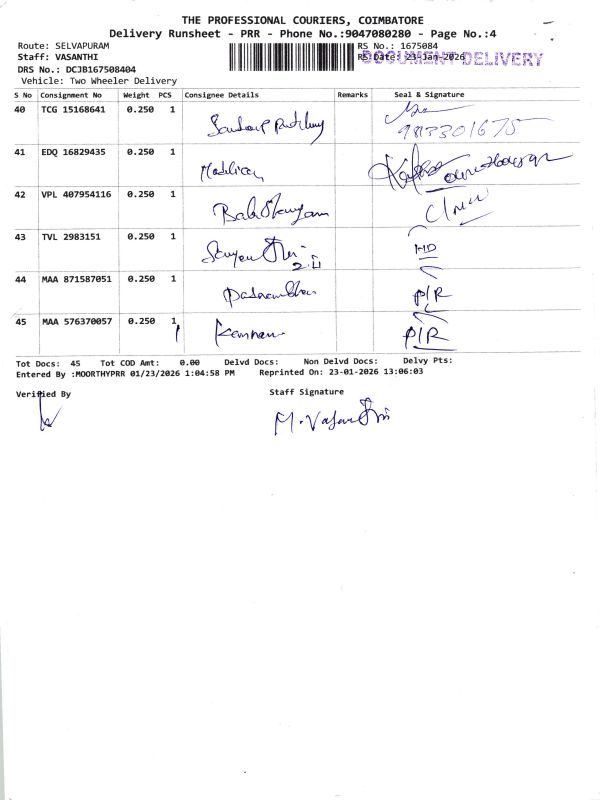 THE PROFESSIONAL COURIERS, COIMBATORE
Delivery Runsheet - PRR - Phone No.:9047080280 - Page No.:4
Route: SELVAPURAM
Staff: VASANTHI
DRS No.: DCJB167508404
Vehicle: Two Wheeler Delivery
RS No.: 1675084
RS Date: 23-Jan-2026
DOCUMENT DELIVERY
S No Consignment No Weight PCS Consignee Details Remarks Seal & Signature
40 TCG 15168641 0.250 1
41 EDQ 16829435 0.250 1
42 VPL 407954116 0.250 1
43 TVL 2983151 0.250 1 HD
44 MAA 871587051 0.250 1 P/R
45 MAA 576370057 0.250 1 P/R
Tot Docs: 45 Tot COD Amt: 0.00 Delvd Docs: Non Delvd Docs: Delvy Pts:
Entered By :MOORTHYPRR 01/23/2026 1:04:58 PM Reprinted On: 23-01-2026 13:06:03
Verified By Staff Signature